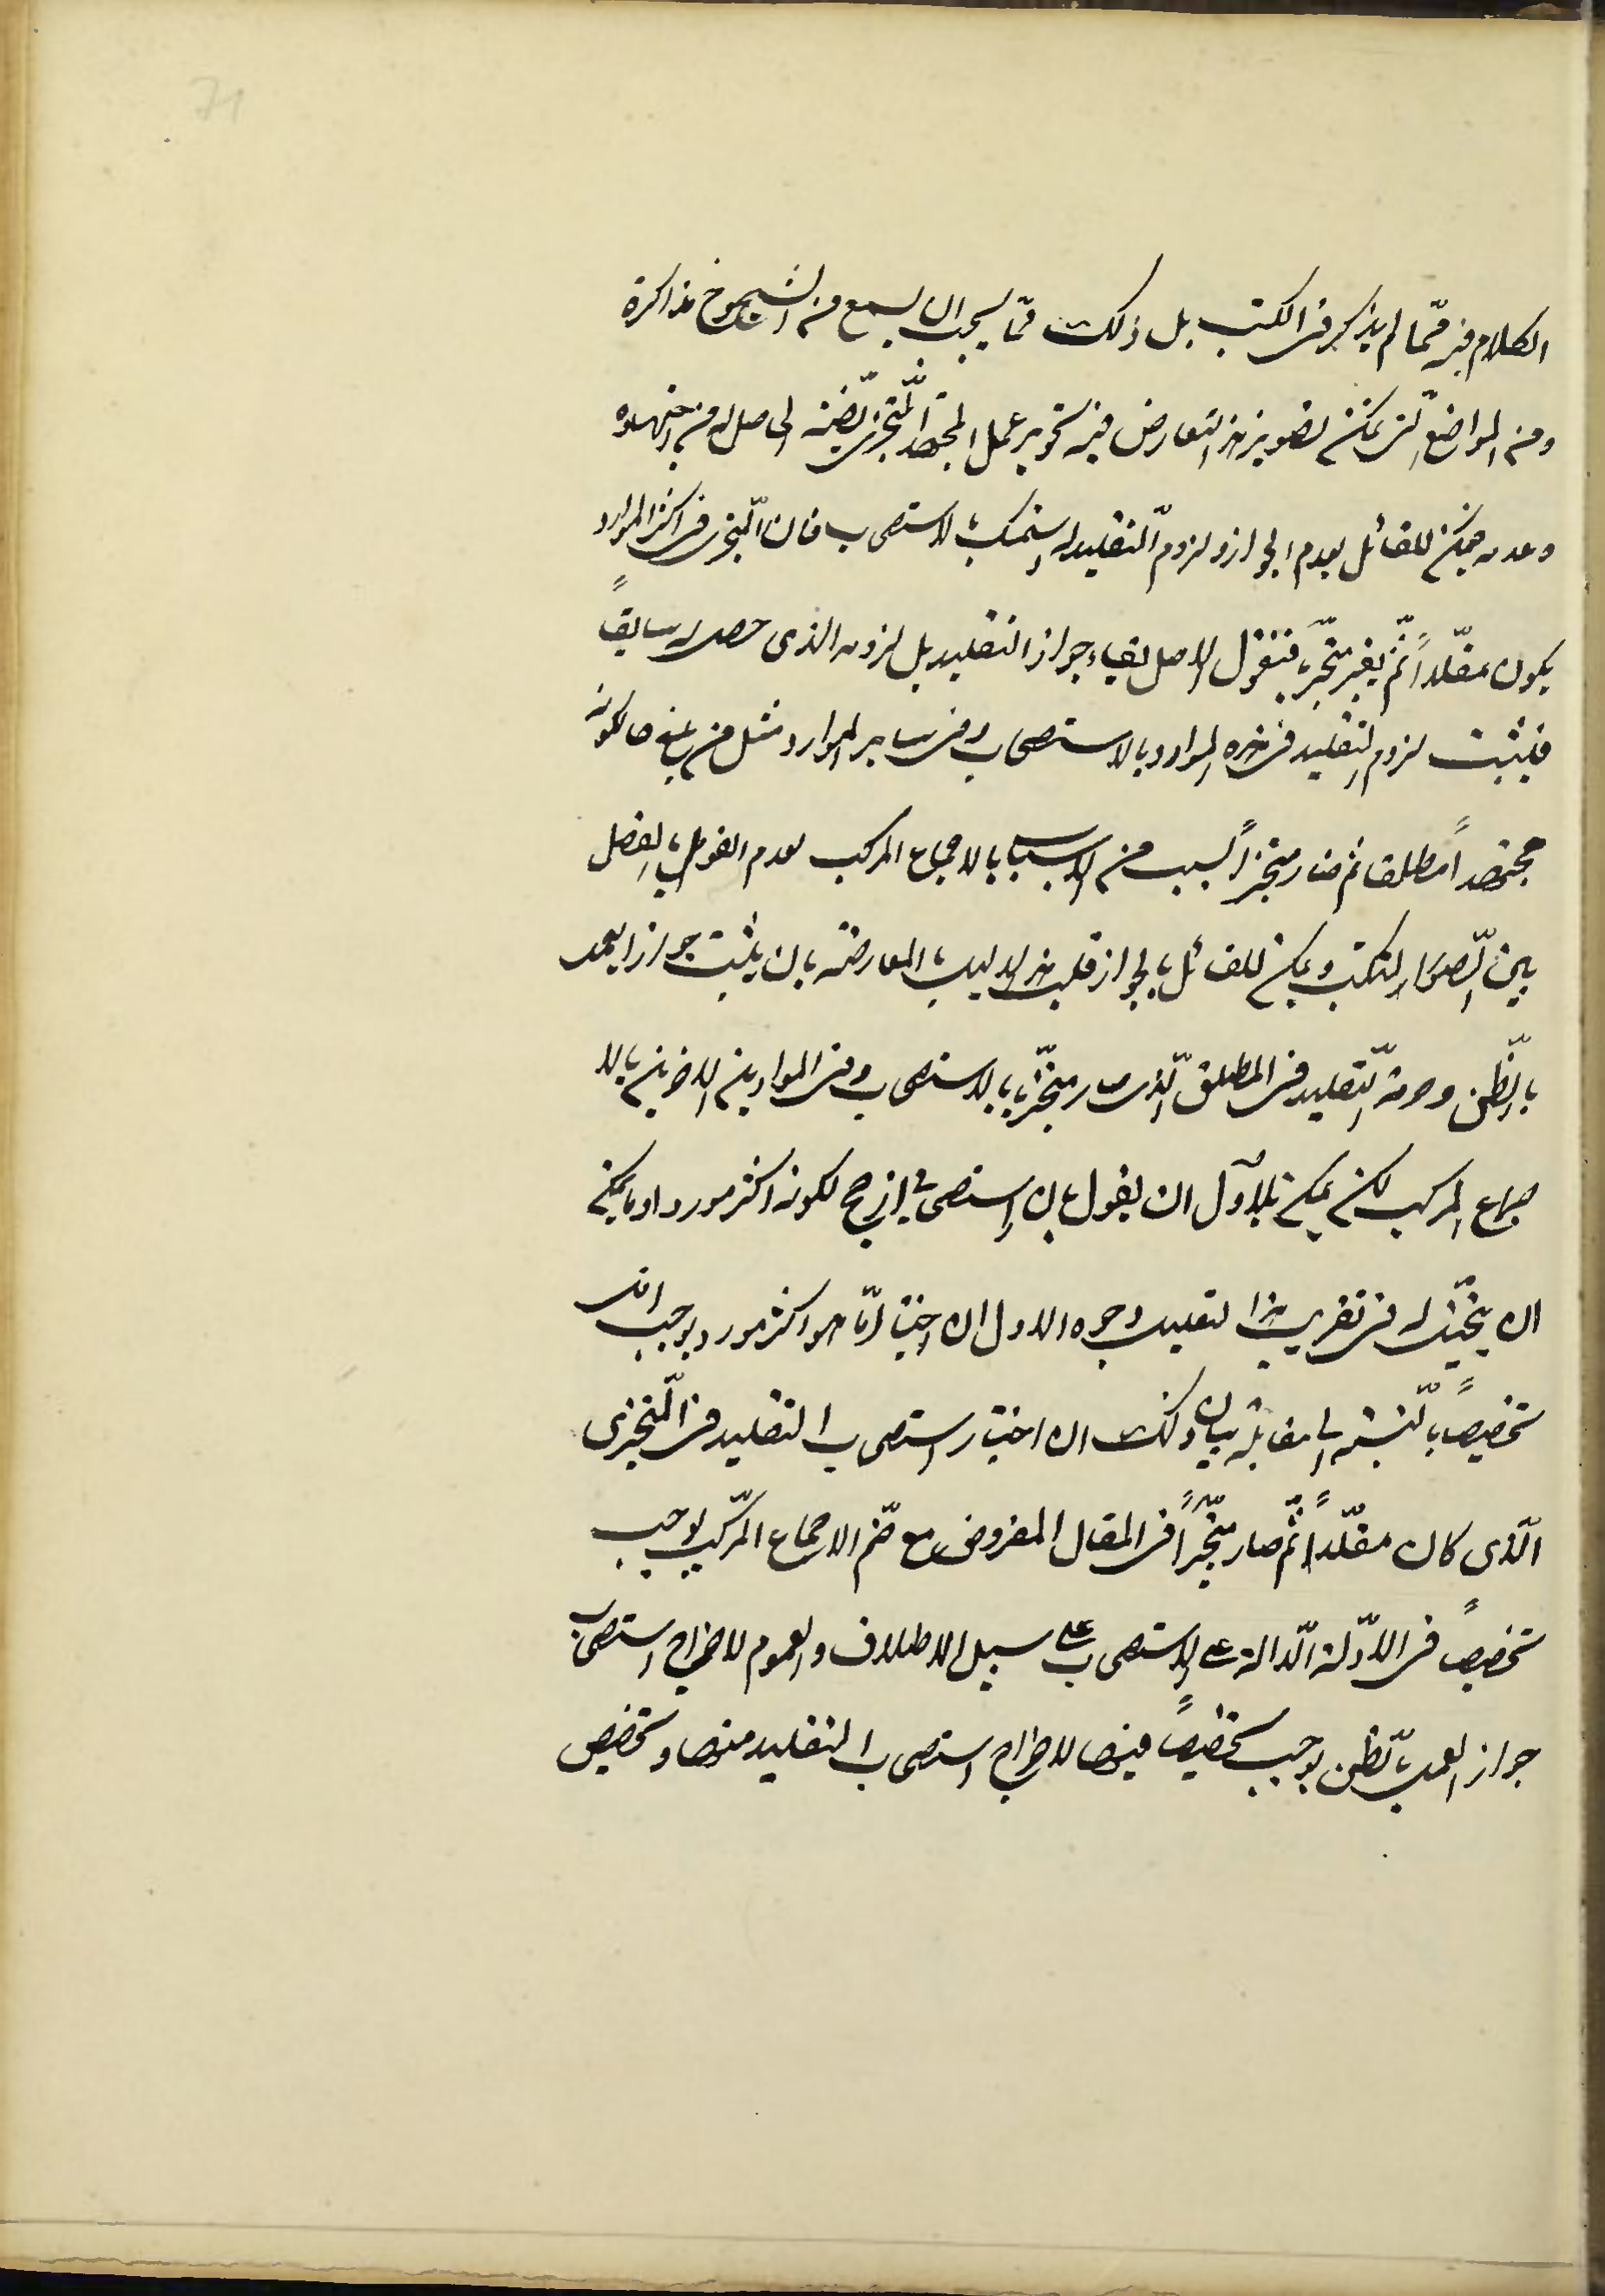 71
الكلام فيه ممّا لم يذكر فى الكتب بل ذلك ممّا يجب ان يسمع من الشيوخ مذاكرة
ومن المواضع الّتى يمكن تصوير هذا التعارض فيه تجويز عمل المجتهد المتجزّى بظنّه الحاصل له من اجتهاده
وعدمه فيمكن للقائل بعدم الجواز ولزوم التّقليد له التمسك بالاستصحاب فان المتجزّى فى اكثر الموارد
يكون مقلّداً ثمّ يصير متجزّيا فنقول الاصل بقاء جواز التقليد بل لزومه الذى حصل له سابقاً
فيثبت لزوم التقليد فى هذه الموارد بالاستصحاب وفى ساير الموارد مثل من بلغ حالكونه
مجتهداً مطلقا ثم صار متجزياً بسبب من الاسباب بالاجماع المركب لعدم القول بالفصل
بين الصّور الثلث ويمكن للقائل بالجواز قلب هذا الدليل بالمعارضة بان يثبت جواز العمل
بالظّن وحرمة التّقليد فى المطلق الّذى صار متجزّيا بالاستصحاب وفى الموردين الاخرين بالا
جماع المركب لكن يمكن للاوّل ان يقول بان استصحابى ارجح لكونه اكثر موردا وما يمكن
ان يتخيّل له فى تقريب هذا التعليل وجوه الاول ان اختيار ما هو اكثر مورد يوجب اقل
تخصيصاً بالنّسبة الى مقابله بيان ذلك ان اختيار استصحاب التقليد فى المتجزّى
الّذى كان مقلّداً ثمّ صار متجزّياً فى المقال المفروض مع ضمّ الاجماع المركّب لا يوجب
تخصيصاً فى الادّلة الدّالة على الاستصحاب على سبيل الاطلاق والعموم لاخراج استصحاب
جواز العمل بالظّن يوجب تخصيصاً فيها لاخراج استصحاب التقليد منها وتخصيص